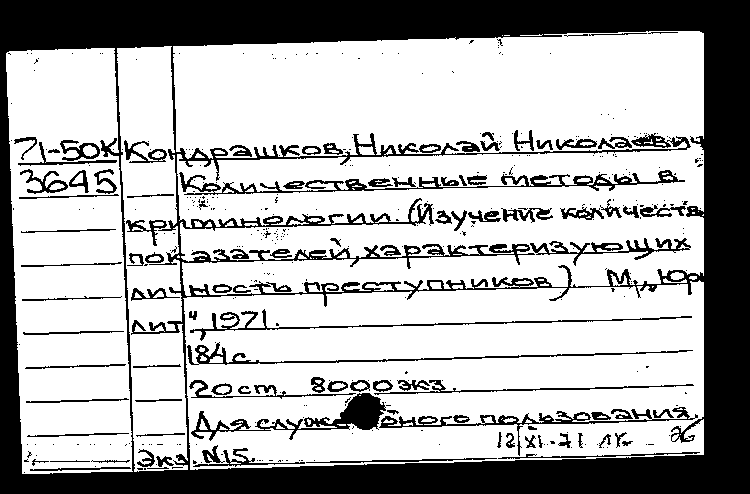 71-50К Кондрашков, Николай Николаевич
3645 Количественные методы в
криминологии. (Изучение количеств
показателей, характеризующих
личность преступников). М., „Юри
лит", 1971.
184 с.
20 ст. 8000 экз.
Для служебного пользования.
12 XI-71
Экз. N15.